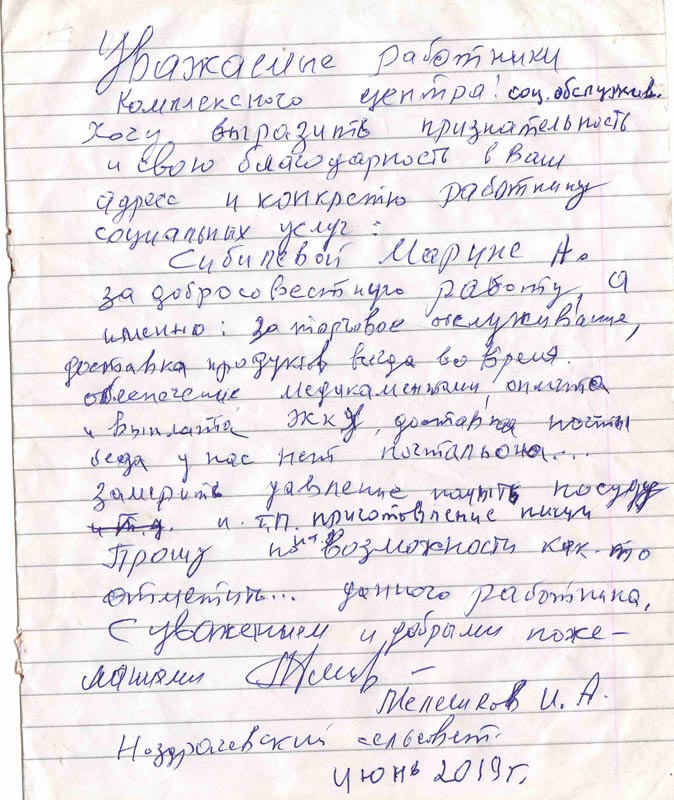 Уважаемые работники
Комплексного центра! соц. обслужив.
Хочу выразить признательность
и свою благодарность в Ваш
адрес и конкретно работнику
социальных услуг:
Сибилевой Марине А.
за добросовестную работу, а
именно: За торговое обслуживание,
доставка продуктов всегда во время.
обеспечение медикаментами, оплата
и выплата ЖКУ, доставка почты
беда у нас нет почтальона....
Замерить давление помыть посуду
и т.д. и т.п. приготовление пищи
Прошу по возможности как-то
отметить... данного работника.
С уважением и добрыми поже-
ланиями
И. А.
Ноздрачевский сельсовет.
июнь 2019г.